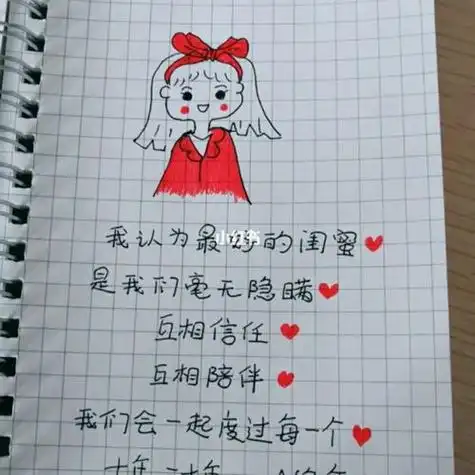 我认为最好的闺蜜
小红书
是我们毫无隐瞒
互相信任
互相陪伴
我们会一起度过每一个
十年 二十年